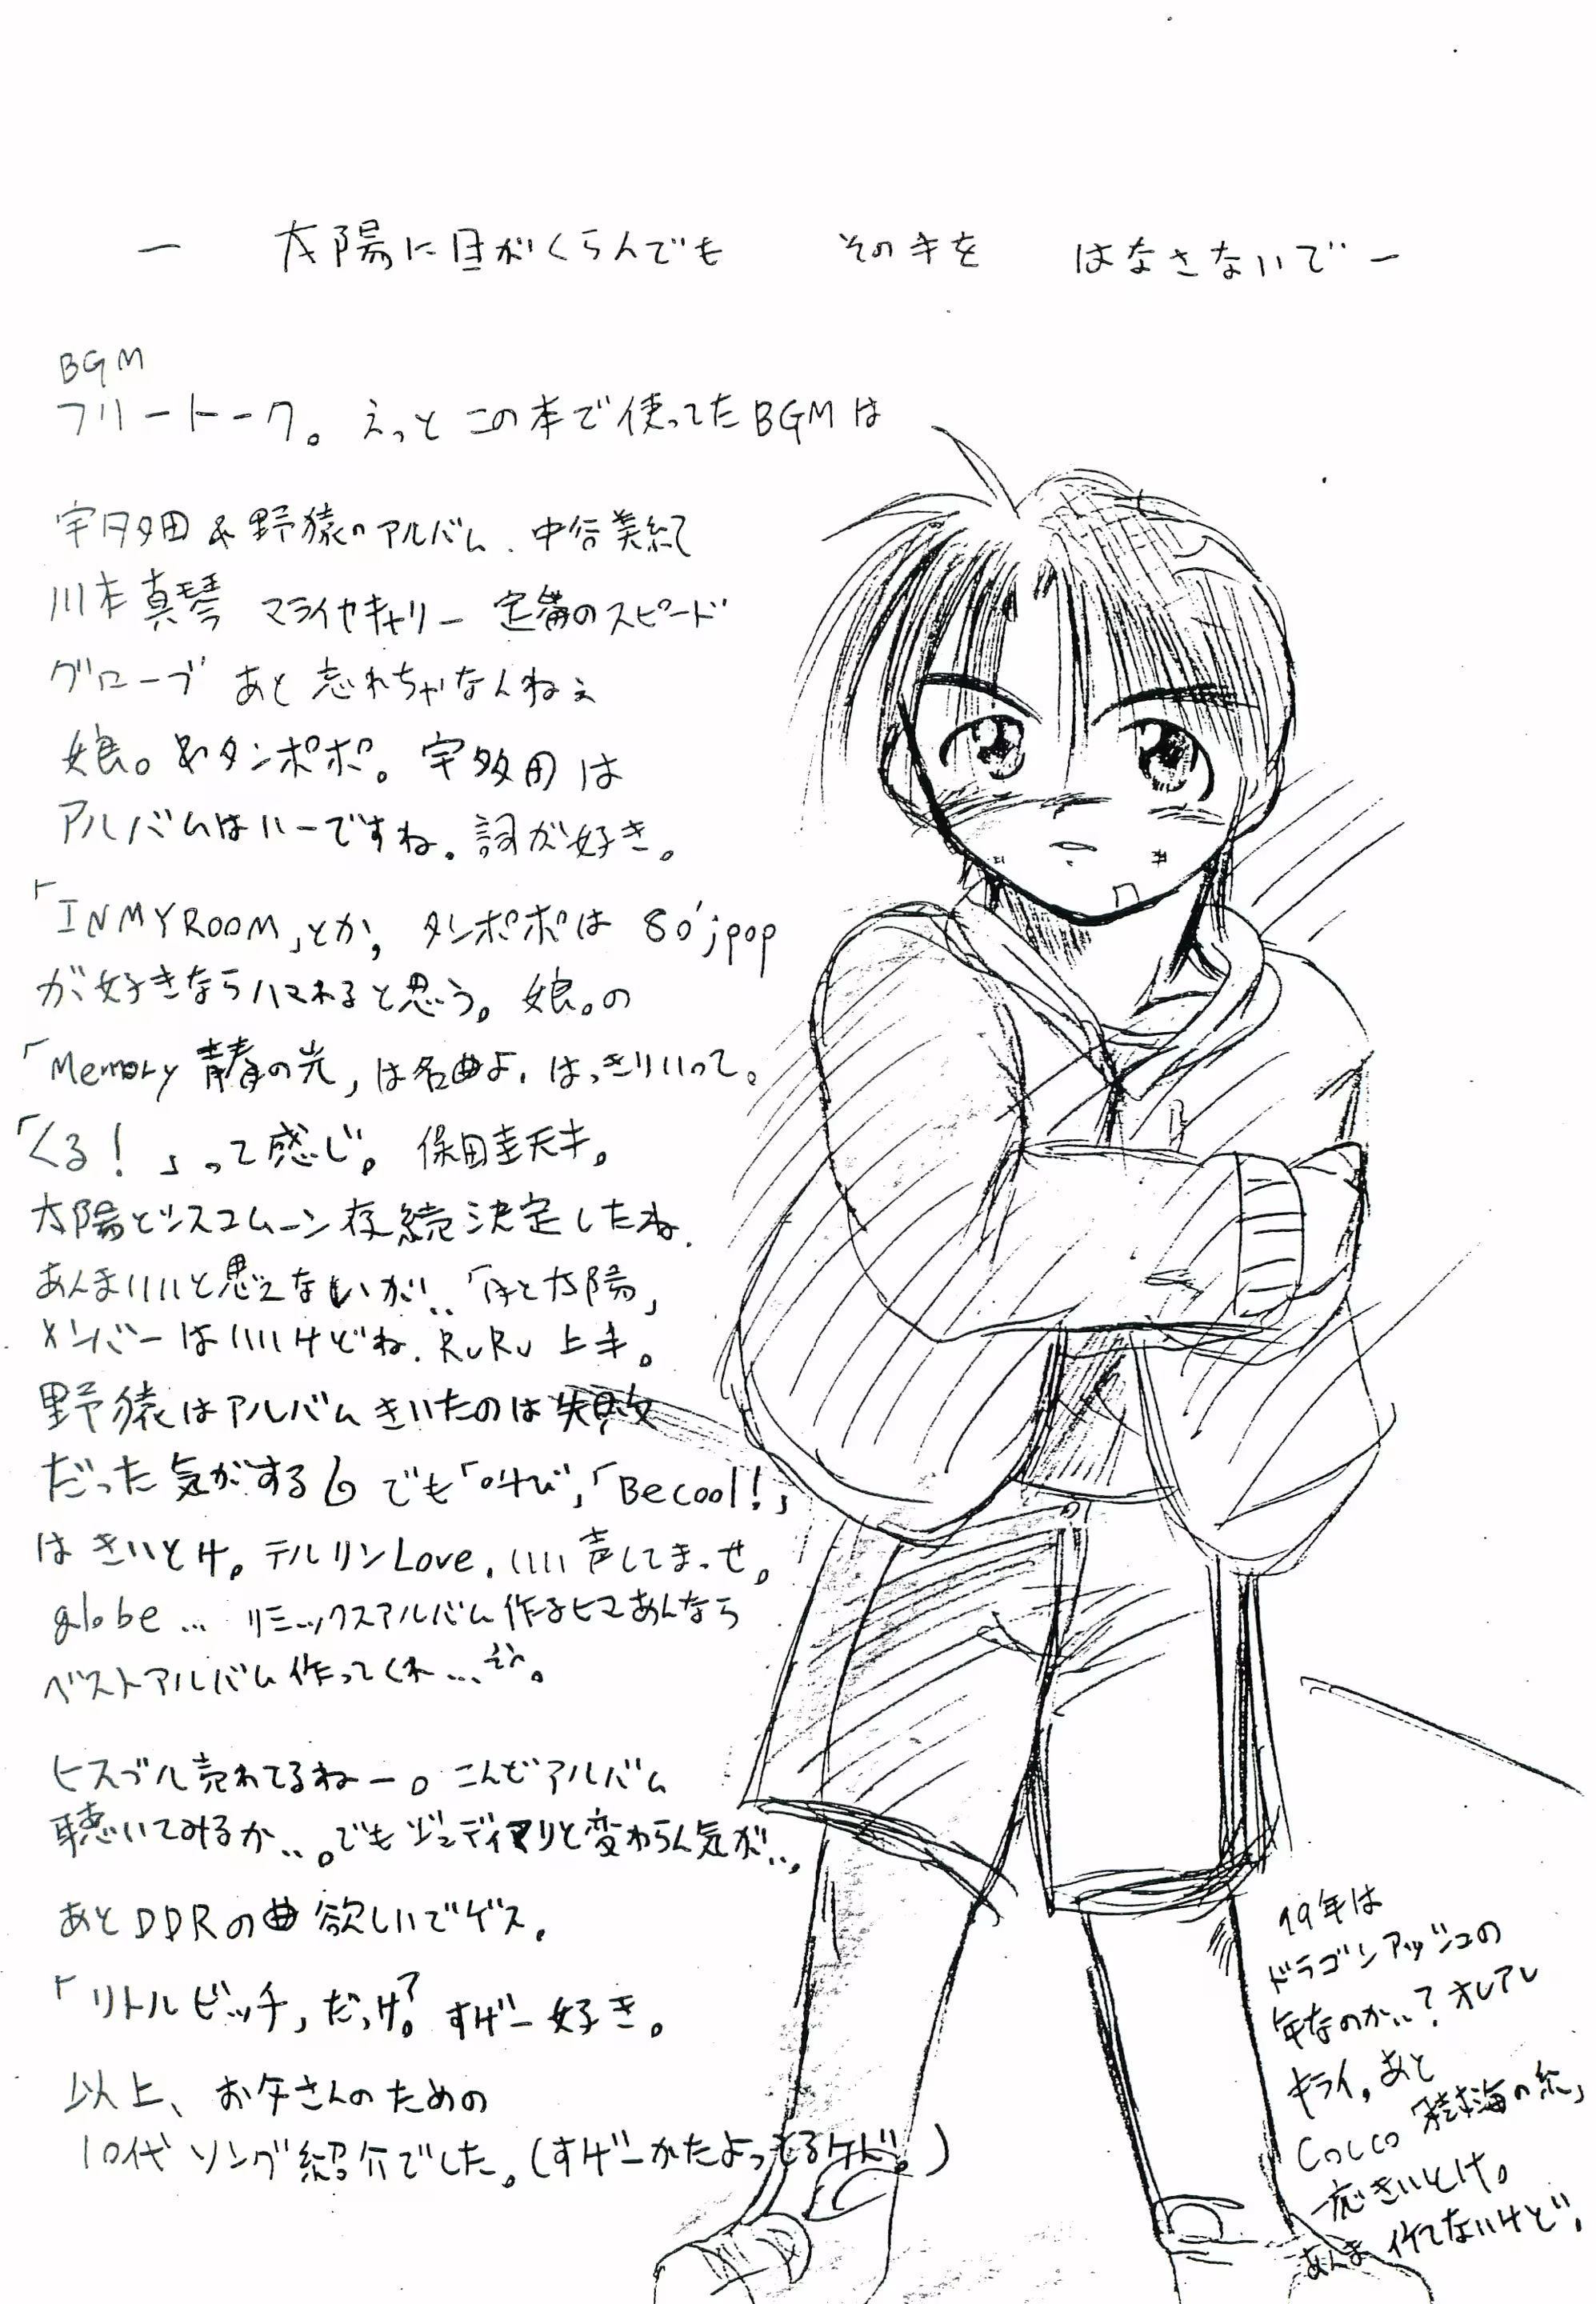 ー 太陽に目がくらんでも その手を はなさないで ー
BGM
フリートーク。えっと この本で使ってたBGMは
宇多田&野猿のアルバム、中谷美紀
川本真琴 マライヤキャリー 定番のスピード
グローブ あと 忘れちゃなんねぇ
娘。&タンポポ。宇多田は
アルバムはいーですね。詞が好き。
「IN MY ROOM」とか、タンポポは 80'jpop
が好きならハマれると思う。娘。の
「Memory 青春の光」は名曲よ、はっきりいって。
「くる!」って感じ。保田圭天才。
太陽とシスコムーン存続決定したね、
あんまいいと思えないが‥「月と太陽」
メンバーはいいけどね、RuRu 上手。
野猿はアルバムきいたのは失敗
だった気がする でも「叫び」「Be cool!」
は きいとけ。テルリンLove、いい声してまっせ。
globe … リミックスアルバム作るヒマあんなら
ベストアルバム作ってくれ…
ヒスブル売れてるねー。こんどアルバム
聴いてみるか‥。でもジュディマリと変わらん気が‥。
あとDDRの曲欲しいでゲス。
「リトルビッチ」だっけ?すげー好き。
以上、お父さんのための
10代ソング紹介でした。(すげーかたよってるケド。)
99年は
ドラゴンアッシュの
年なのか‥?オレアレ
キライ。あと
Cocco「樹海の糸」
一応きいとけ。
あんま 似てないけど。